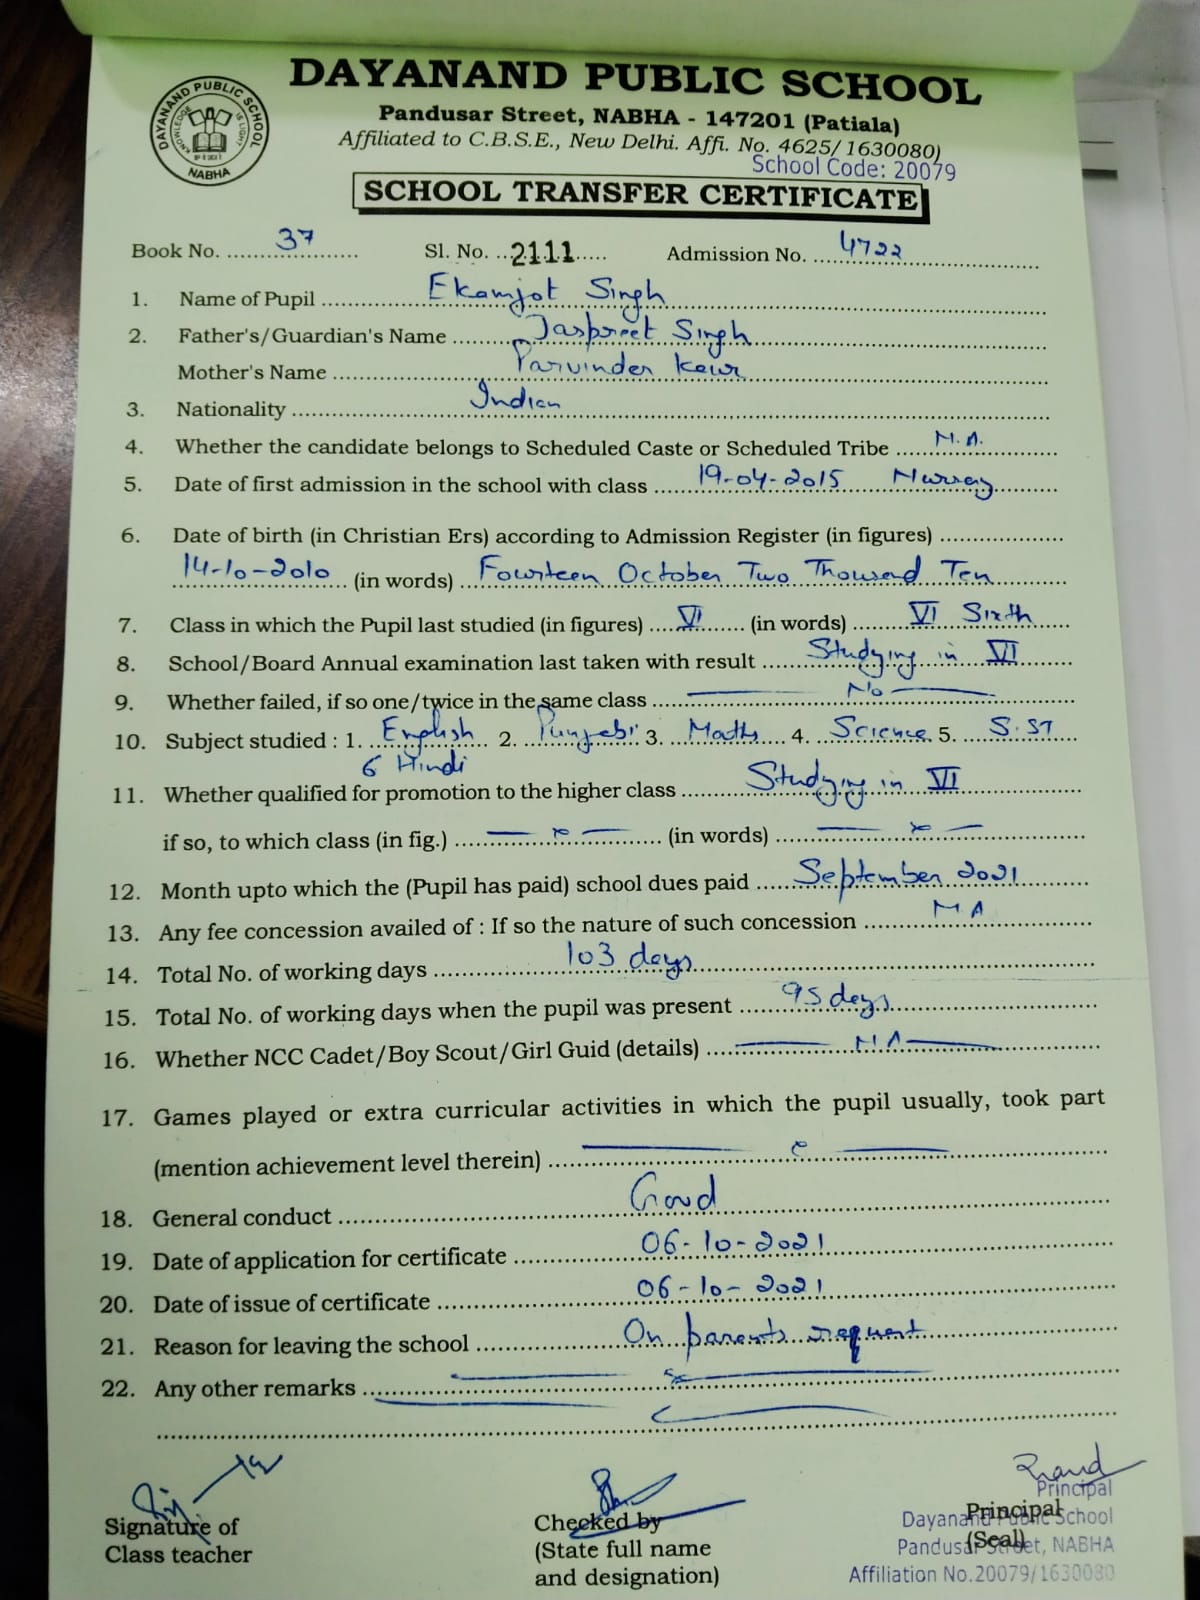 DAYANAND PUBLIC SCHOOL
DAYANAND PUBLIC SCHOOL
KNOWLEDGE IS LIGHT
NABHA
Pandusar Street, NABHA - 147201 (Patiala)
Affiliated to C.B.S.E., New Delhi. Affi. No. 4625/ 1630080)
School Code: 20079
SCHOOL TRANSFER CERTIFICATE
Book No. 37 Sl. No. 2111 Admission No. 4722
1. Name of Pupil Ekamjot Singh
2. Father's/Guardian's Name Jaspreet Singh
Mother's Name Parvinder Kaur
3. Nationality Indian
4. Whether the candidate belongs to Scheduled Caste or Scheduled Tribe N.A.
5. Date of first admission in the school with class 19-04-2015 Nursery
6. Date of birth (in Christian Ers) according to Admission Register (in figures)
14-10-2010 (in words) Fourteen October Two Thousand Ten
7. Class in which the Pupil last studied (in figures) VI (in words) VI Sixth
8. School/Board Annual examination last taken with result Studying in VI
9. Whether failed, if so one/twice in the same class No
10. Subject studied : 1. English 2. Punjabi 3. Maths 4. Science 5. S.ST
6 Hindi
11. Whether qualified for promotion to the higher class Studying in VI
if so, to which class (in fig.) (in words)
12. Month upto which the (Pupil has paid) school dues paid September 2021
13. Any fee concession availed of : If so the nature of such concession N A
14. Total No. of working days 103 days
15. Total No. of working days when the pupil was present 95 days
16. Whether NCC Cadet/Boy Scout/Girl Guid (details) N A
17. Games played or extra curricular activities in which the pupil usually, took part
(mention achievement level therein)
18. General conduct Good
19. Date of application for certificate 06-10-2021
20. Date of issue of certificate 06-10-2021
21. Reason for leaving the school On parents request
22. Any other remarks
Signature of
Class teacher
Checked by
(State full name
and designation)
Principal
(Seal)
Principal
Dayanand Public School
Pandusar Street, NABHA
Affiliation No.20079/1630080